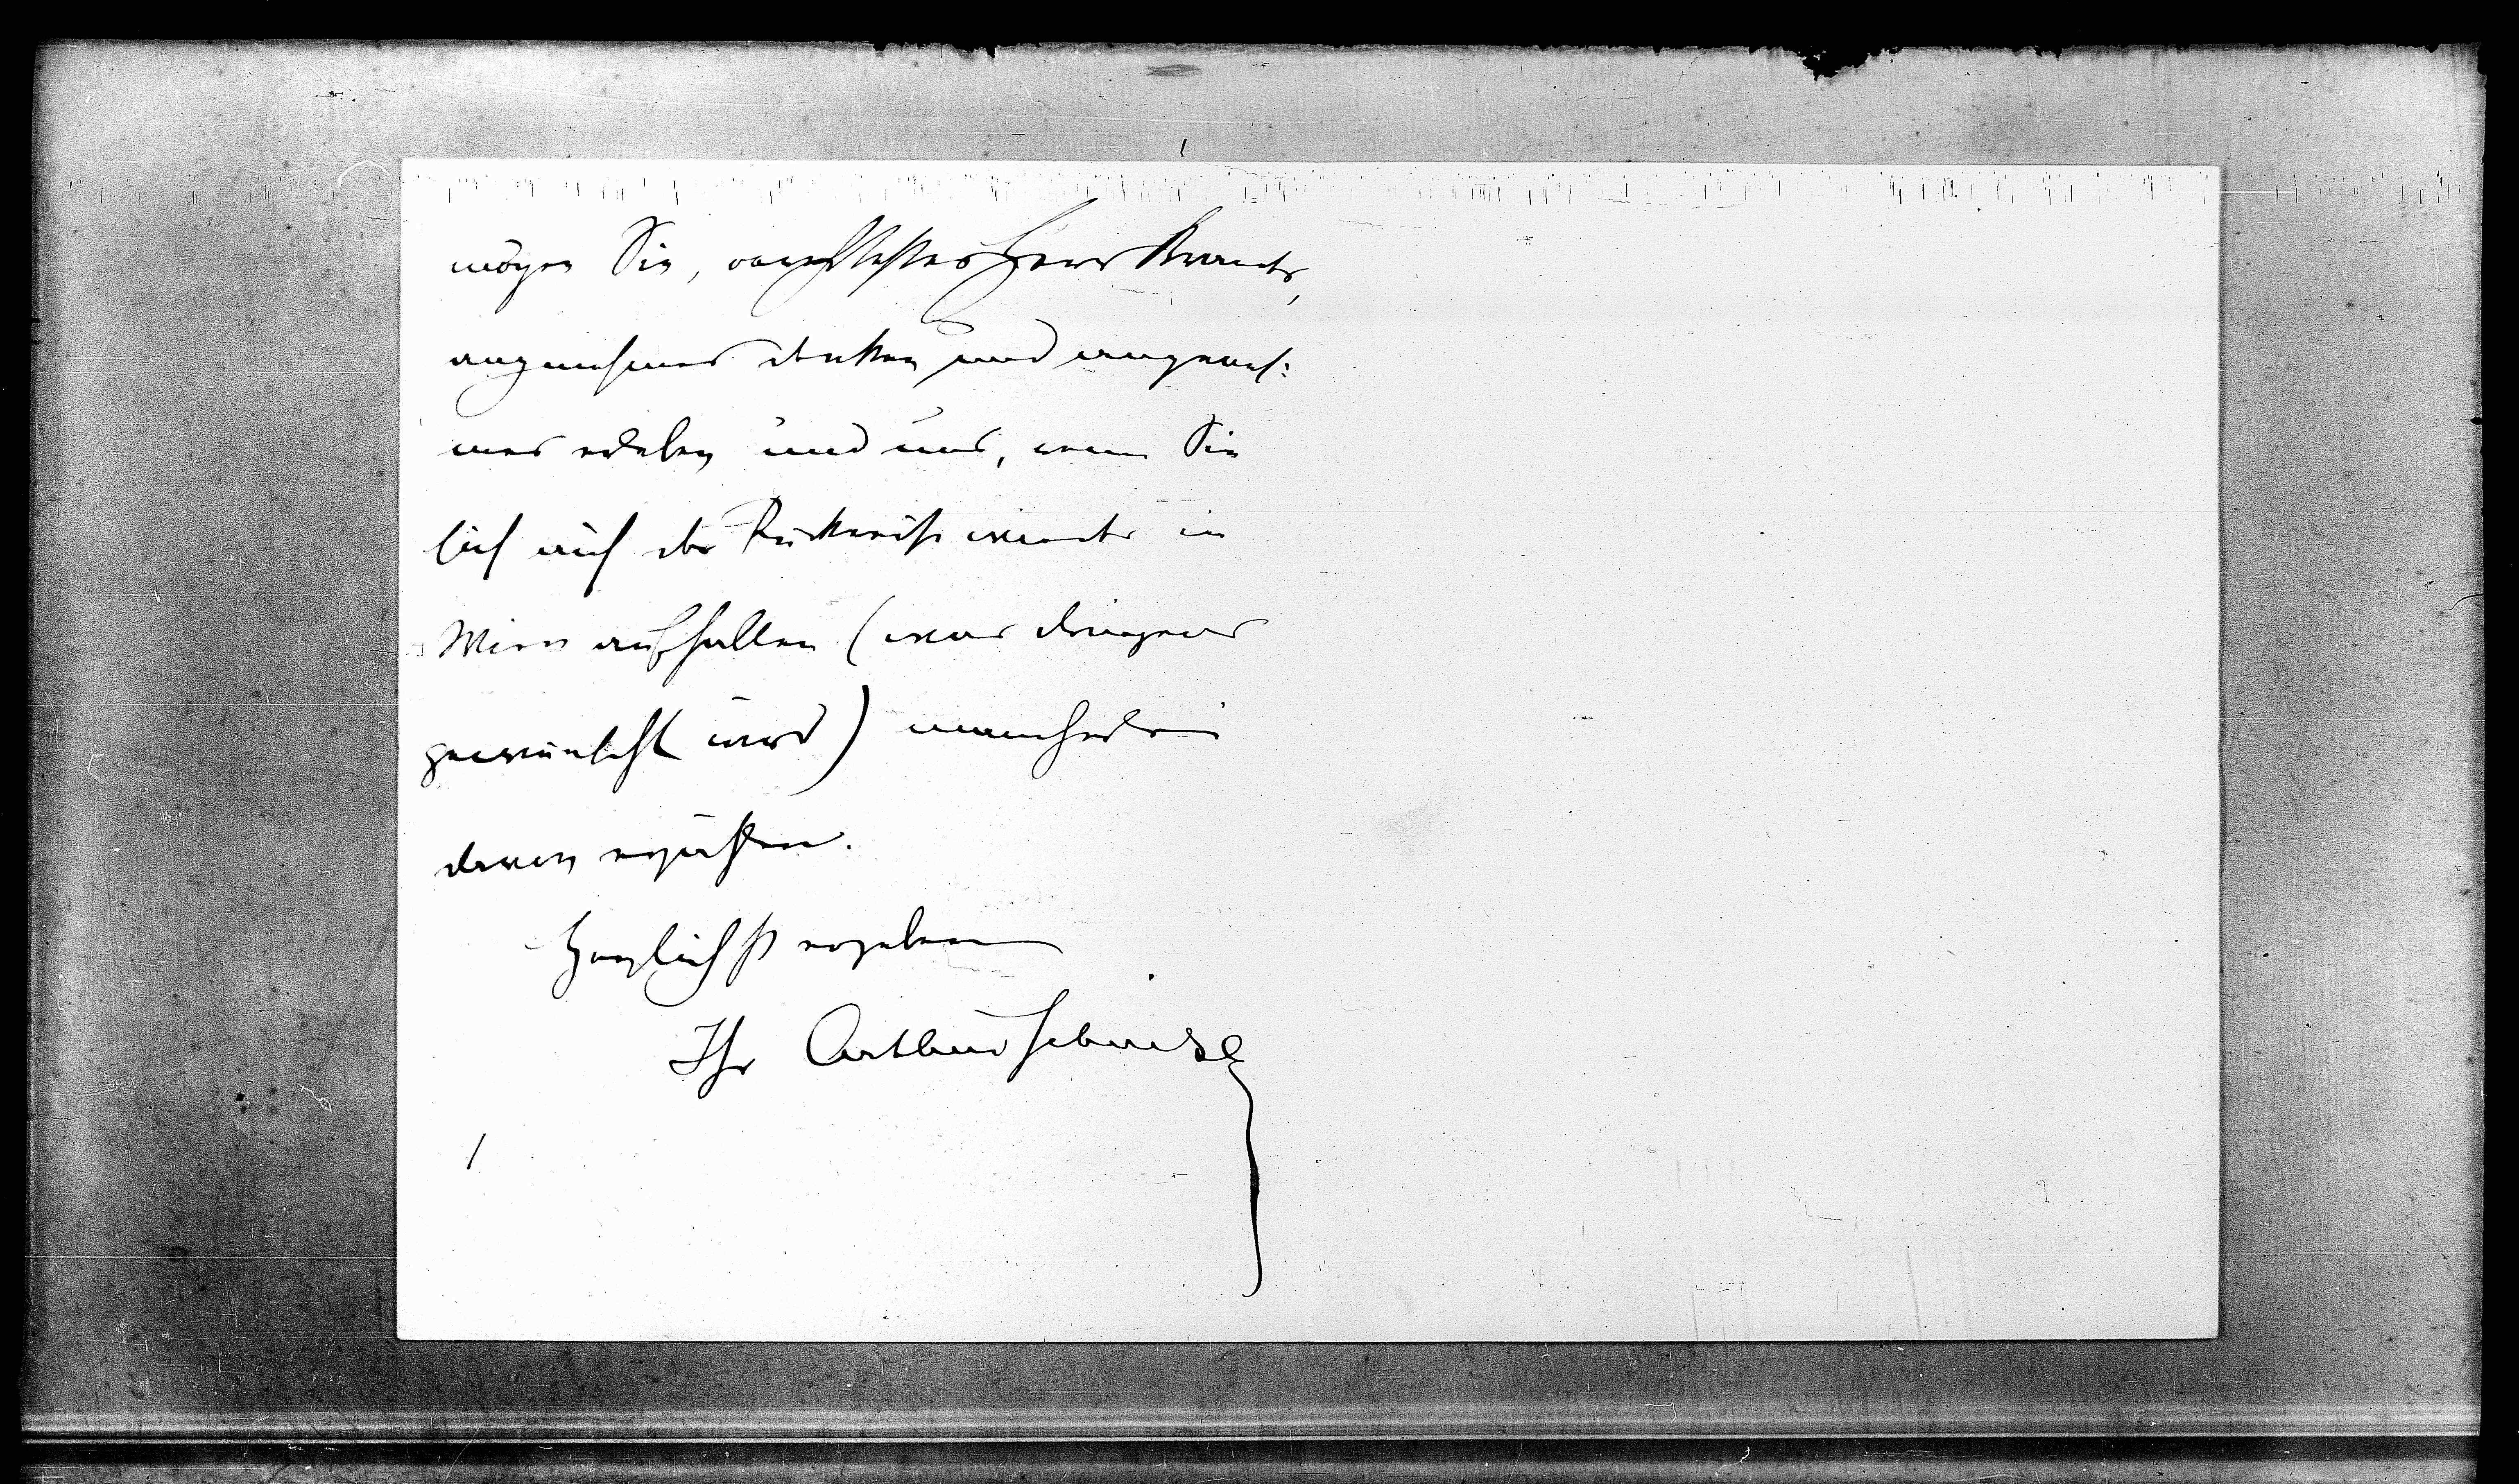 mögen Sie, verehrtester Herr Brandes,
angenehmes denken und angeneh:
mes erleben und uns, wenn Sie
sich auf der Rückreise wieder in
Wien aufhalten (was dringend
gewünscht wird) mancherlei
davon erzählen.
Herzlichst ergeben
Ihr Arthur Schnitzler